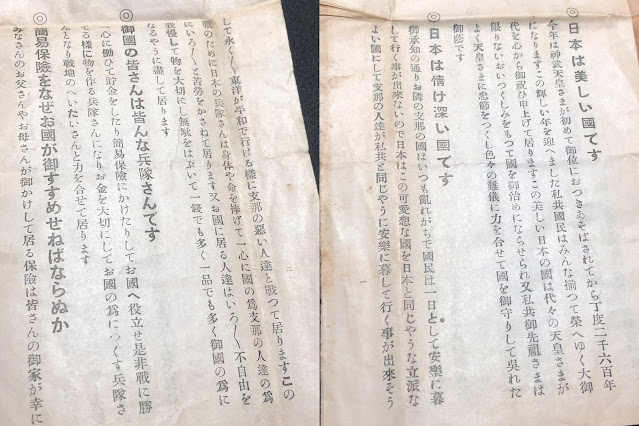 ◎日本は美しい國です
今年は神武天皇さまが初めて御位におつきあそばされてから丁度二千六百年
になりますこの輝しい年を迎へました私共國民はみんな揃つて榮へゆく大御
代を心から御祝ひ申上げて居りますこの美しい日本の國は代々の天皇さまが
限りないおいつくしみをもつて國を御治めにならせられ又私共御先祖さまは
よく天皇さまに忠節をつくし色々の難儀に力を合せて國を御守りして吳れた
御蔭です
◎日本は情け深い國です
御承知の通りお隣の支那の國はいつも亂れがちで國民は一日として安樂に暮
して行く事が出來ないので日本はこの可愛想な國を日本と同じやうな立派な
よい國にして支那の人達が私共と同じやうに安樂に暮して行く事が出來さう
して永く〱東洋が平和で行ける樣に支那の惡い人達と戰つて居りますこの
戰のために日本の兵隊さんは身体や命を捧げて一心に國の爲支那の人達の爲
にいろ〱と苦勞をかさねて居ります又お國に居る人達はいろ〱不自由を
我慢して物を大切にし無駄をはぶいて一錢でも多く一品でも多く御國の爲に
なるやうに盡して居ります
◎御國の皆さんは皆んな兵隊さんです
一心に働いて貯金をしたり簡易保險にかけたりしてお國へ役立せ是非戰に勝
てる樣に物を作る兵隊さんになりお金を大切にしてお國の爲につくす兵隊さ
んとなり戰地のへいたいさんと力を合せて居ります
◎簡易保險をなぜお國が御すすめせねばならぬか
みなさんのお父さんやお母さんが御かけして居る保險は皆さんの御家が幸に